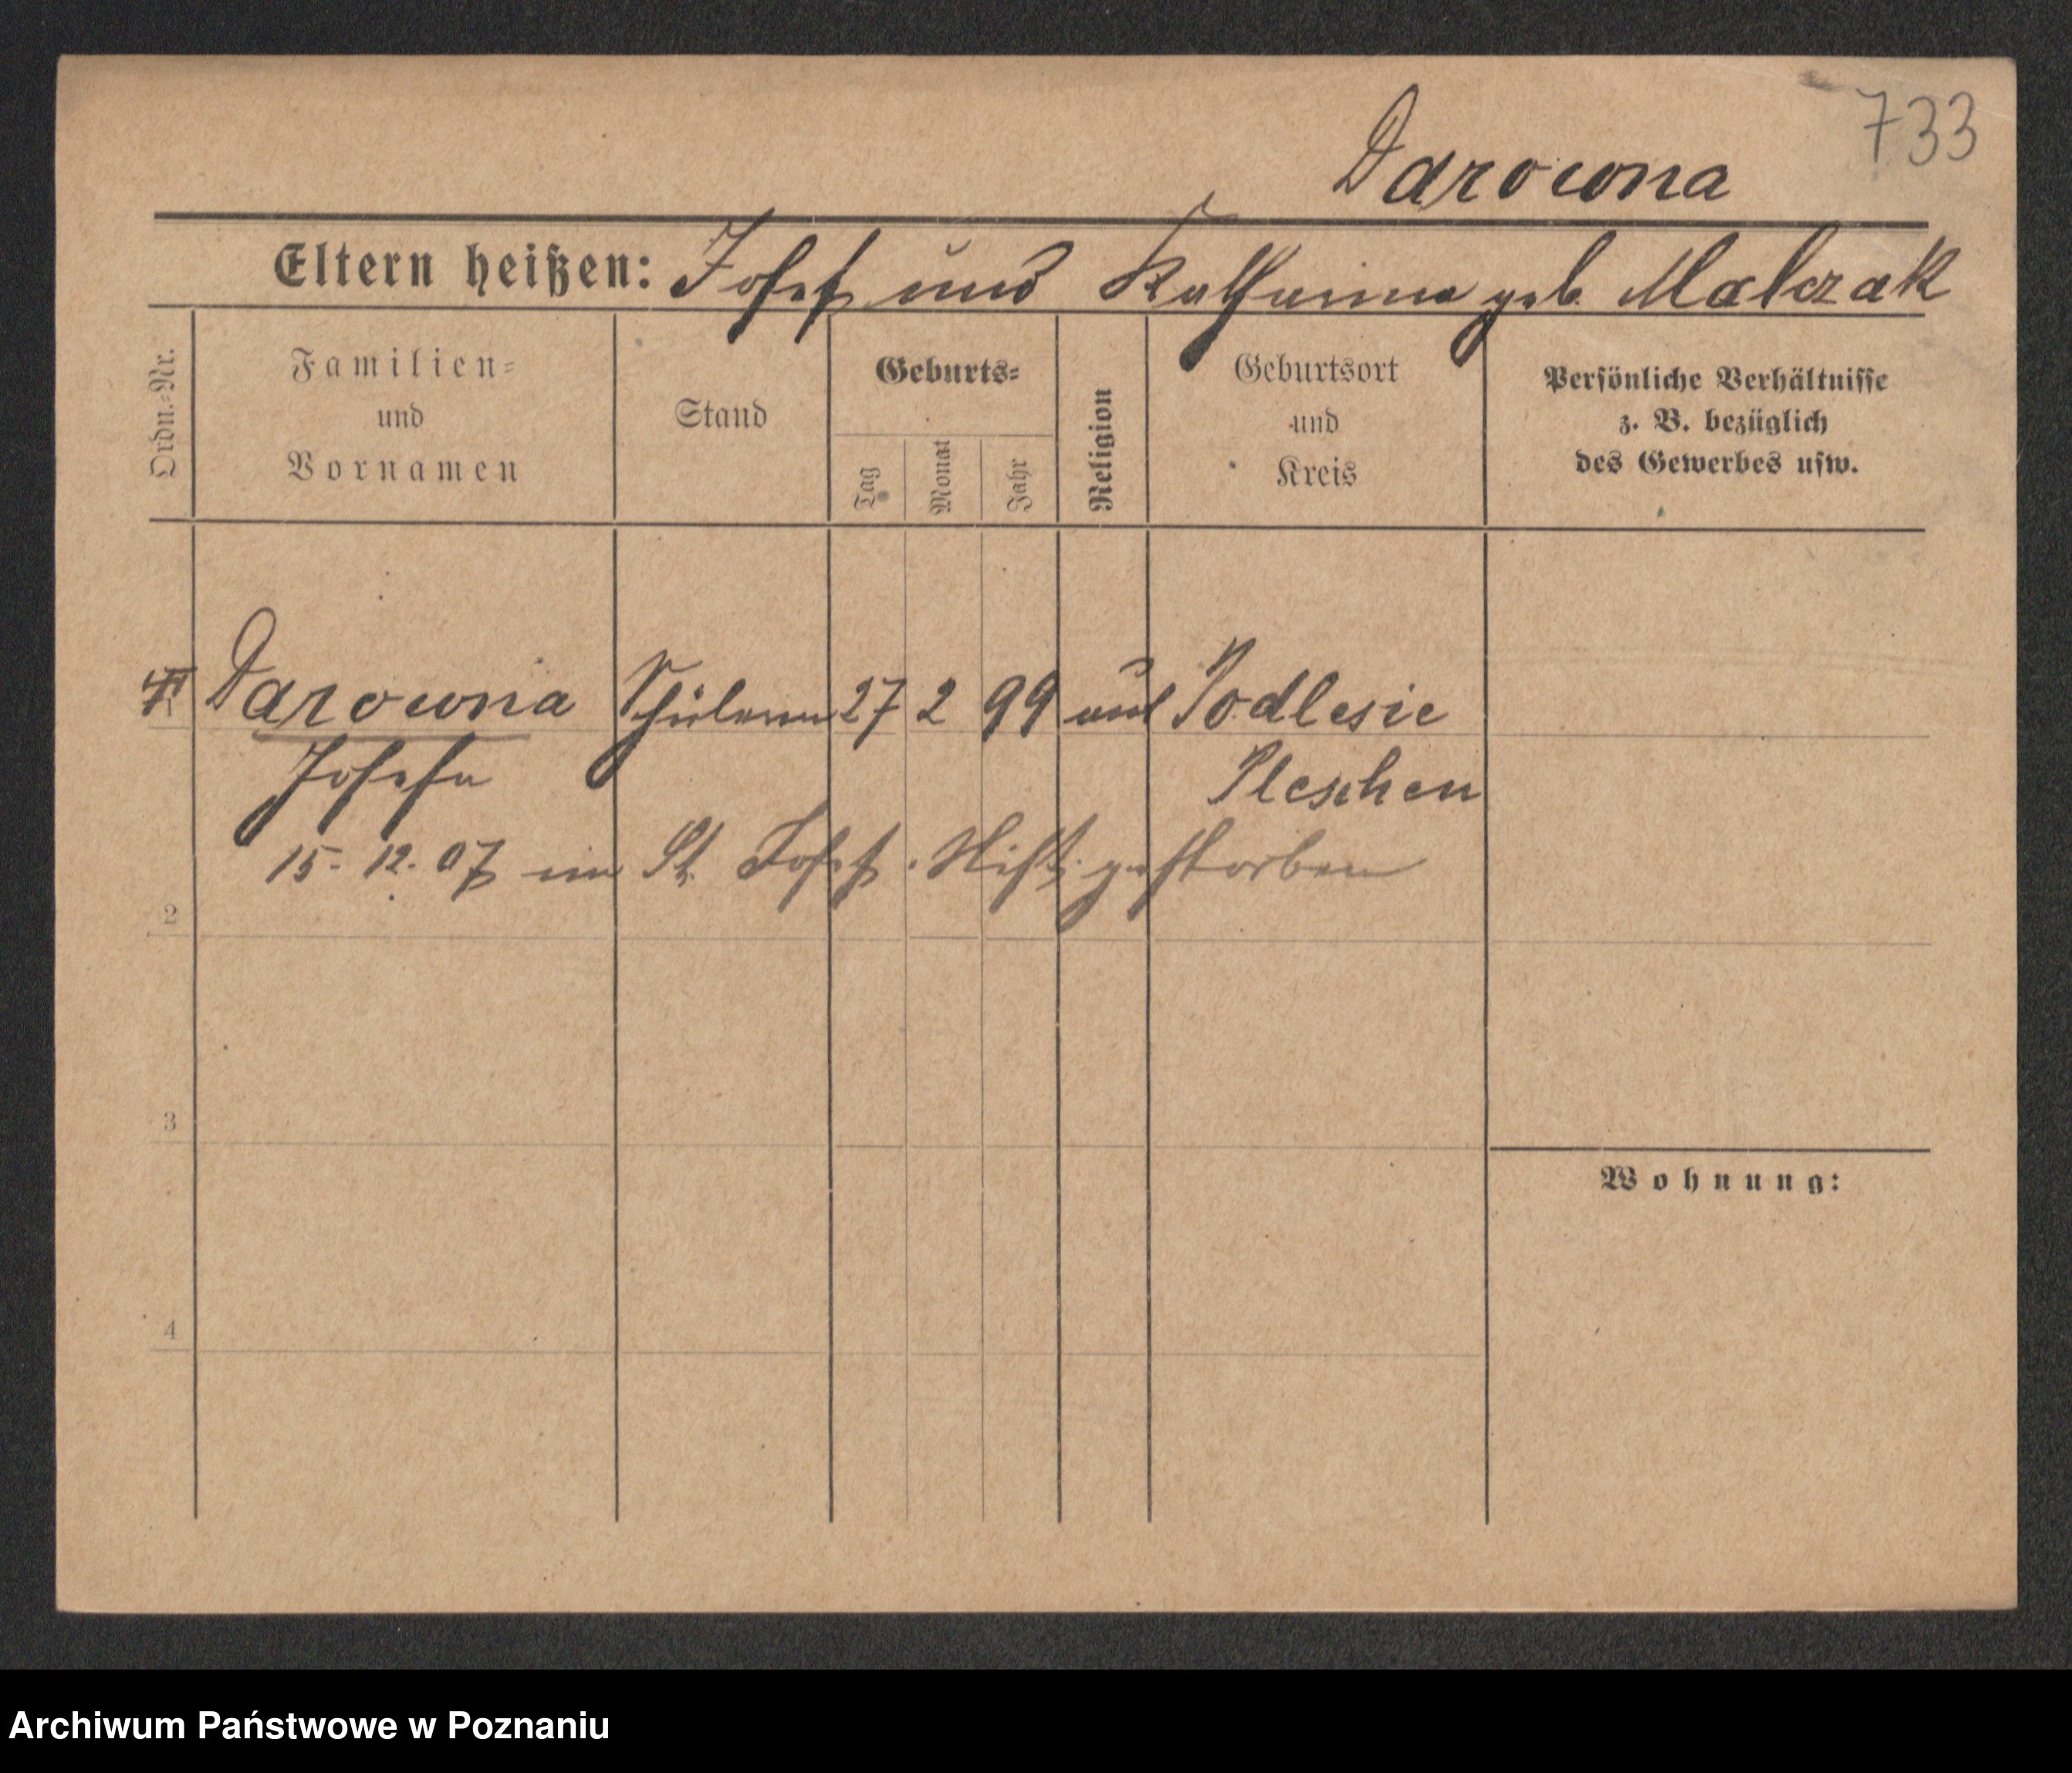 733
Darowna
Eltern heißen: Josef und Katharina geb. Malczak
Ordn.-Nr.
Familien-
und
Vornamen
Stand
Geburts-
Tag
Monat
Jahr
Religion
Geburtsort
und
Kreis
Persönliche Verhältnisse
z. B. bezüglich
des Gewerbes usw.
Darowna Schülerin 27 2 99 Podlesie
Josefa Pleschen
15. 12. 07 im St. Josef. Stift gestorben
2
3
Wohnung:
4
Archiwum Państwowe w Poznaniu